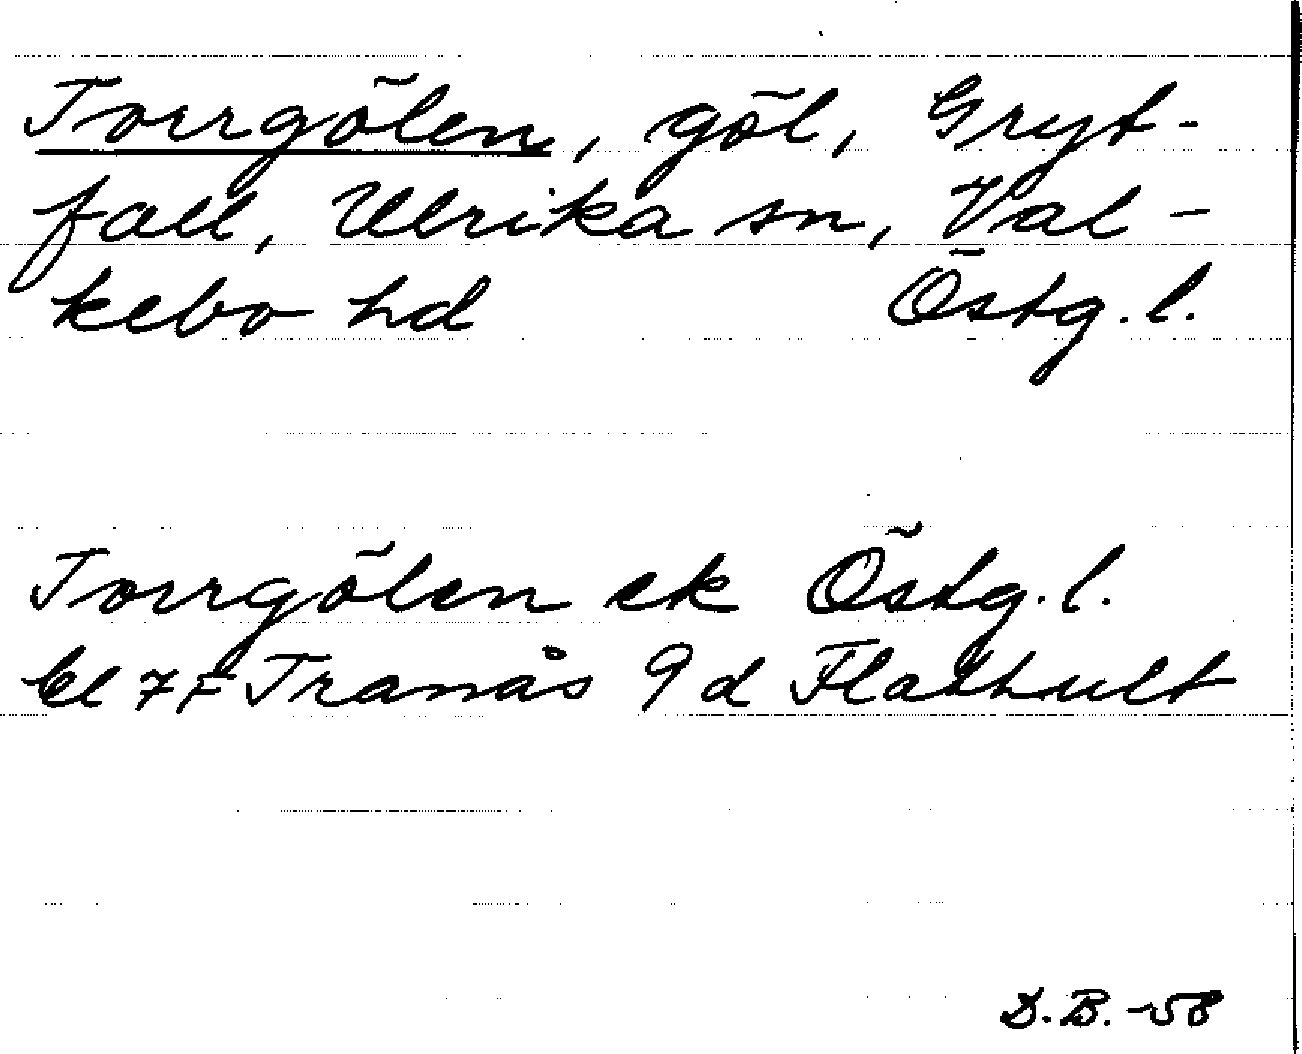 Torrgölen, göl, Gryt-
fall, Ulrika sn, Val-
kebo hd Östg. l.
Torrgölen ek Östg. l.
bl 7F Tranås 9 d Flathult
D.B. -58